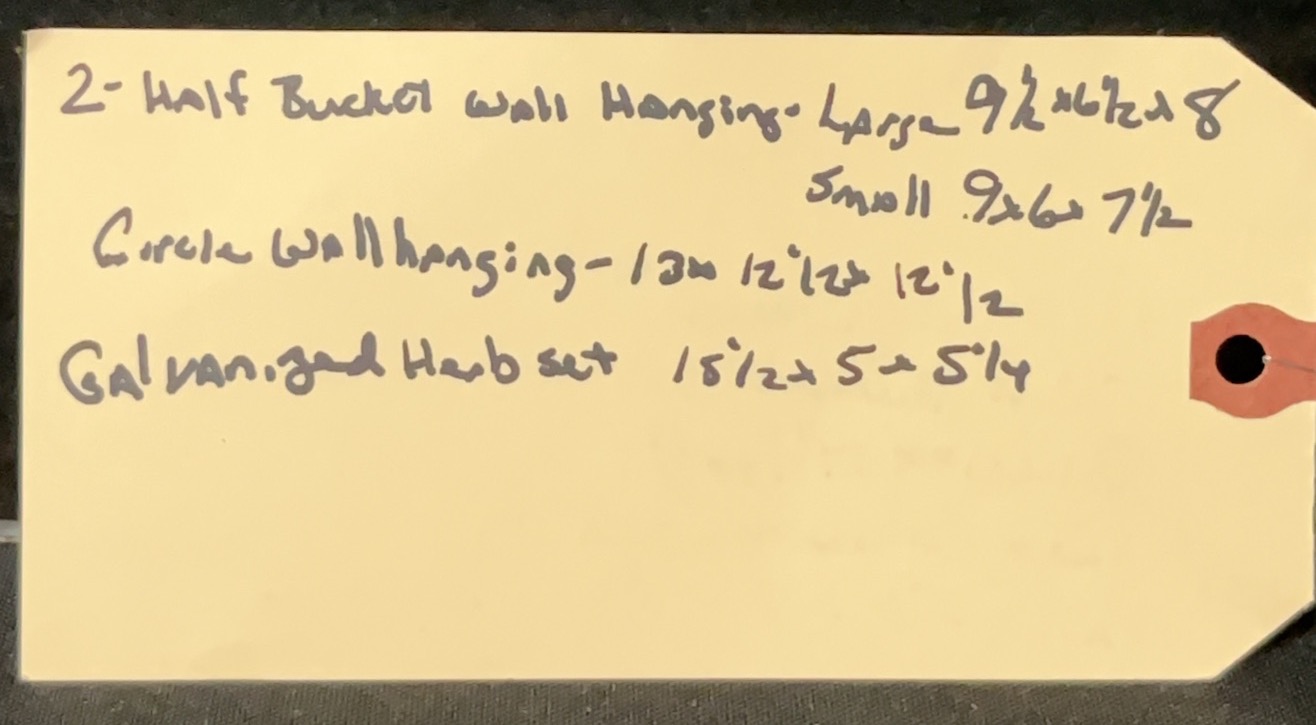 2- Half Bucket Wall Hanging - Large 9 1/2 x 6 1/2 x 8
Small 9x6x 7 1/2
Circle Wallhanging - 13x 12 1/2 x 12 1/2
Galvanized Herb set 15 1/2 x 5 x 5 1/4